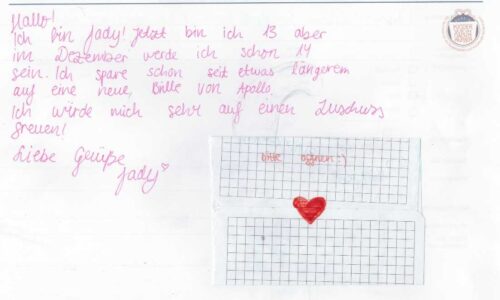 Hallo!
Ich bin Jady! Jetzt bin ich 13 aber
im Dezember werde ich schon 14
sein. Ich spare schon seit etwas längerem
auf eine neue, Brille von Apollo.
Ich würde mich sehr auf einen Zuschuss
freuen!
Liebe Grüße
Jady
bitte öffnen :)